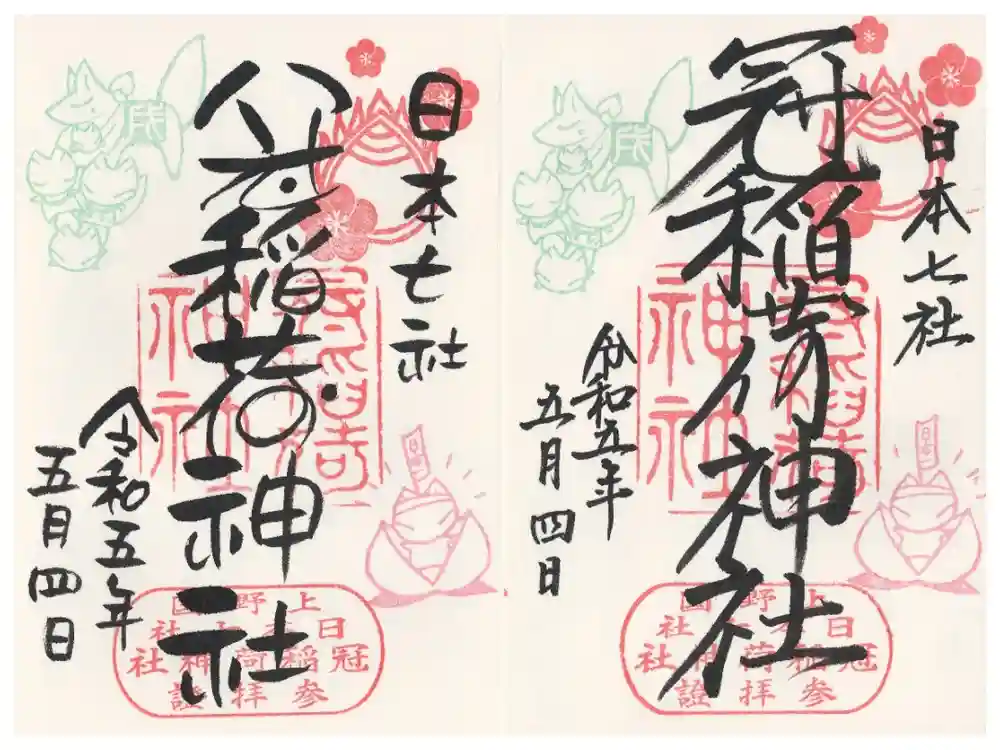 日本七社
冠稲荷神社
令和五年
五月四日
上野國
日本七社
冠稲荷神社
参拝證
日本七社
冠稲荷神社
令和五年
五月四日
上野國
日本七社
冠稲荷神社
参拝證